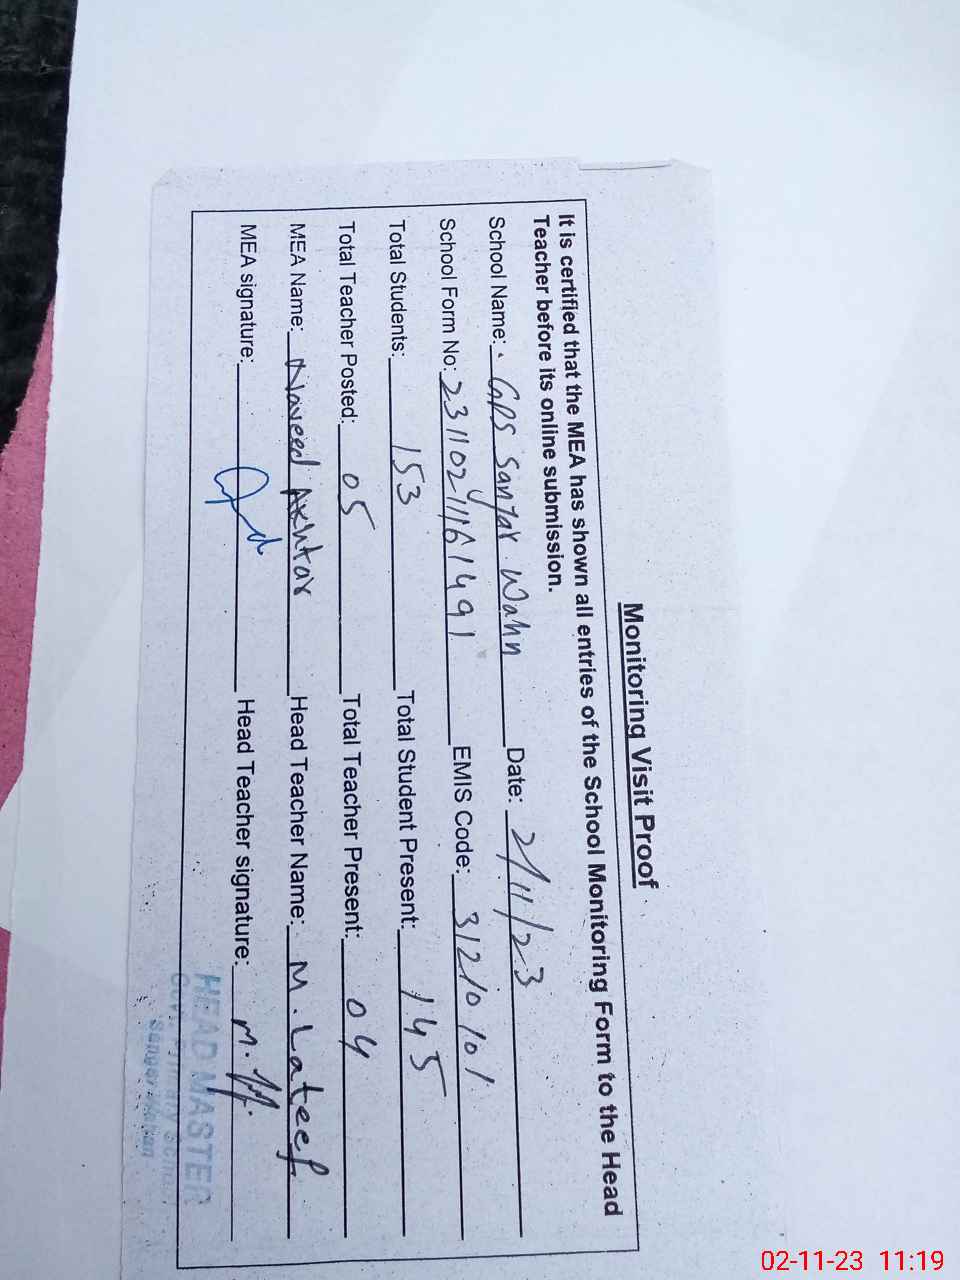 Monitoring Visit Proof
It is certified that the MEA has shown all entries of the School Monitoring Form to the Head
Teacher before its online submission.
School Name: GPS Sangar Wahn Date: 2/11/23
School Form No: 231102 EMIS Code: 31210101
Total Students: 153 Total Student Present: 145
Total Teacher Posted: 05 Total Teacher Present: 04
MEA Name: Naveed Akhtar Head Teacher Name: M. Lateef
MEA signature: Head Teacher signature:
HEAD MASTER
Govt. Primary School
Sangar
02-11-23 11:19